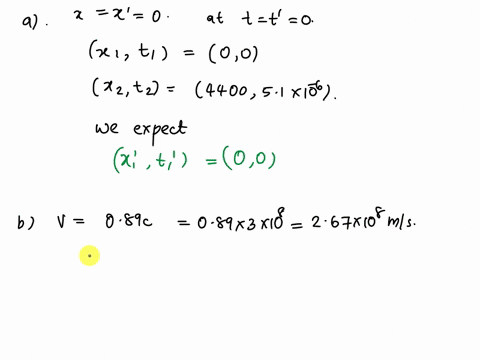 a). x = x' = 0. at t = t' = 0.
(x₁, t₁) = (0,0)
(x₂, t₂) = (4400, 5.1 × 10⁻⁶).
we expect
(x₁', t₁') = (0,0)
b) V = 0.89c = 0.89 × 3 × 10⁸ = 2.67 × 10⁸ m/s.